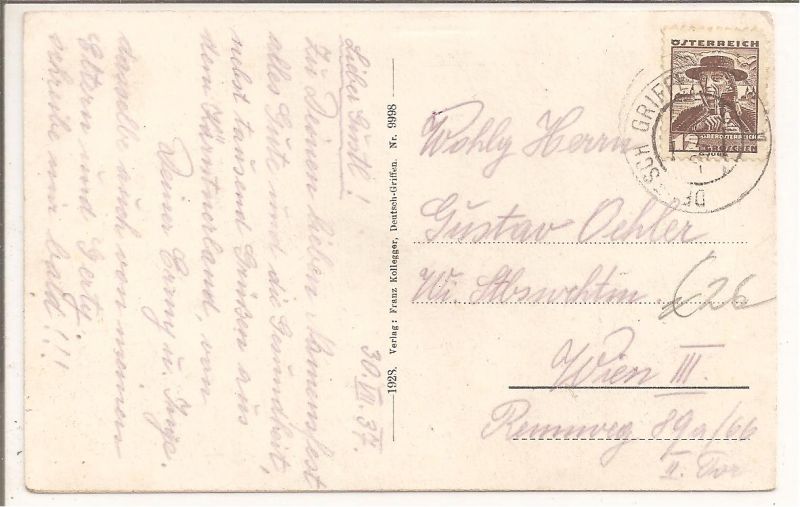 30. VII. 37.
Liebe Gustl!
Zu Deinem lieben Namensfest
alles Gute und die Gesundheit,
nebst tausend Grüßen aus
dem Kärntnerland, von
Deiner u. Inge.
auch von meinen
Eltern und Gerty.
schreibe mir bald!!!
1928. Verlag: Franz Kollegger, Deutsch-Griffen. Nr. 9998
ÖSTERREICH
OBERÖSTERREICH
12 GROSCHEN
DEUTSCH GRIFFEN
Wohlg Herrn
Gustav Oehler
626
Wien III.
Rennweg 89a/66
II. Tor